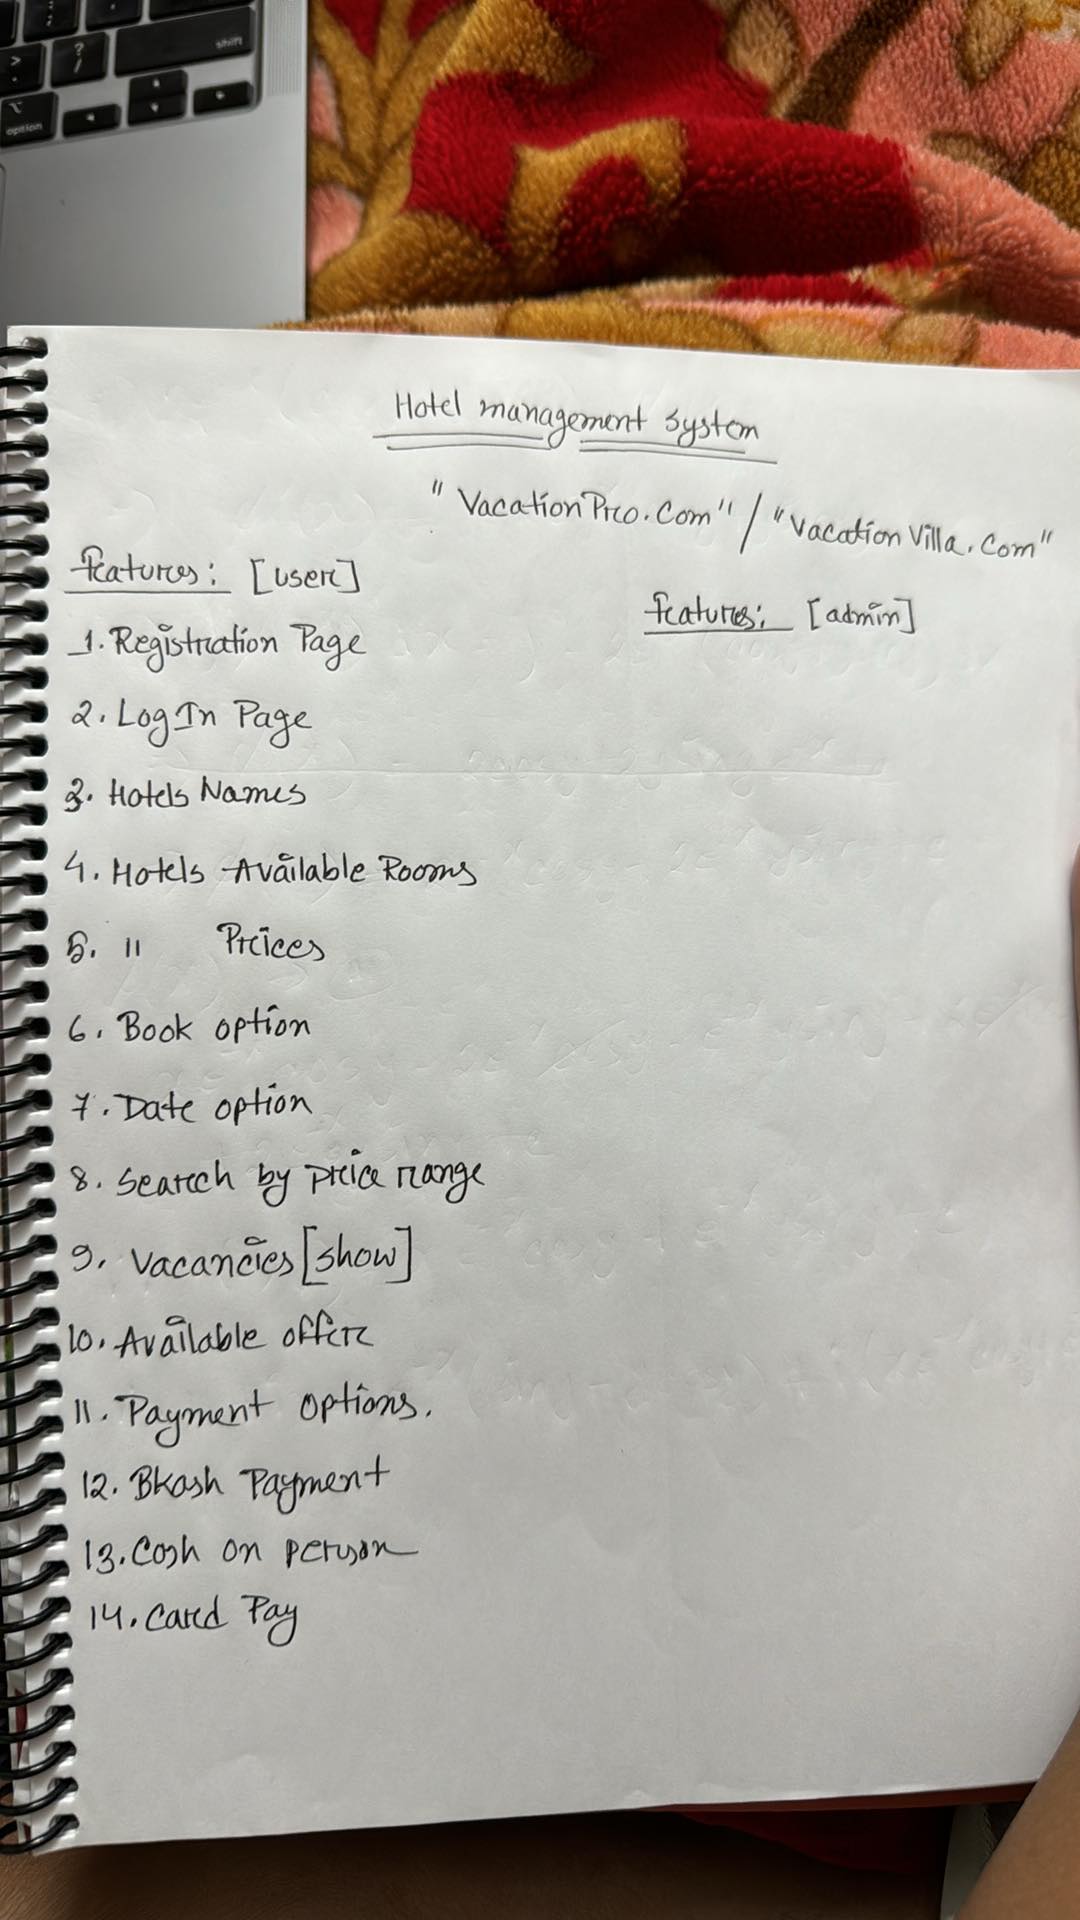 shift
option
Hotel management system
"VacationPro.Com" / "Vacation Villa.Com"
Features: [user]
Features: [admin]
1. Registration Page
2. Log In Page
3. Hotels Names
4. Hotels Available Rooms
5. " Prices
6. Book option
7. Date option
8. Search by price range
9. Vacancies [show]
10. Available offer
11. Payment options.
12. Bkash Payment
13. Cash on person
14. Card Pay